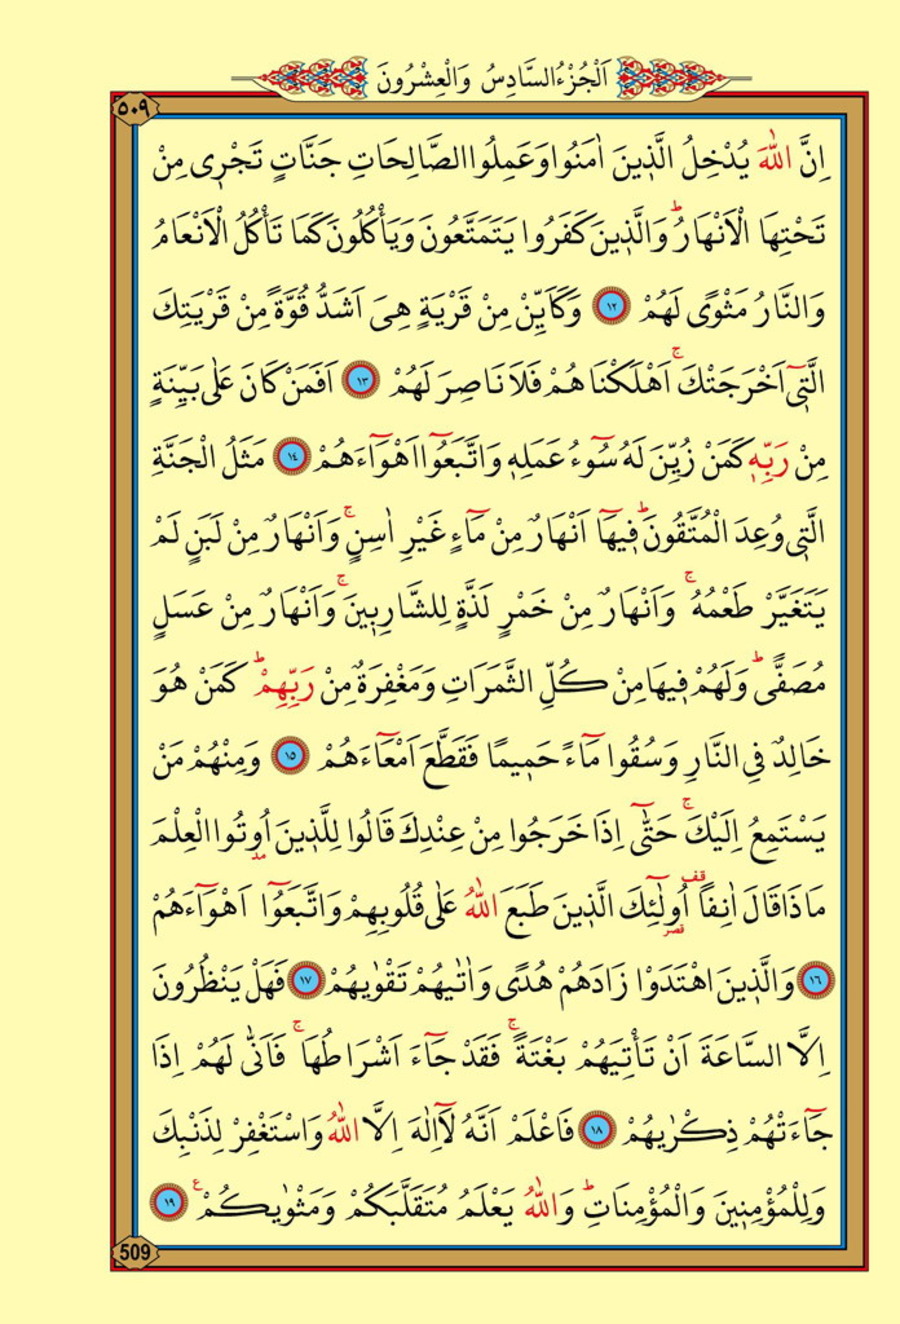 اَلْجُزْءُ السَّادِسُ وَالْعِشْرُونَ
٥٠٩
اِنَّ اللّٰهَ يُدْخِلُ الَّذ۪ينَ اٰمَنُوا وَعَمِلُوا الصَّالِحَاتِ جَنَّاتٍ تَجْر۪ى مِنْ
تَحْتِهَا الْاَنْهَارُۜ وَالَّذ۪ينَ كَفَرُوا يَتَمَتَّعُونَ وَيَأْكُلُونَ كَمَا تَأْكُلُ الْاَنْعَامُ
وَالنَّارُ مَثْوًى لَهُمْ ﴿١٢﴾ وَكَاَيِّنْ مِنْ قَرْيَةٍ هِىَ اَشَدُّ قُوَّةً مِنْ قَرْيَتِكَ
الَّت۪ٓى اَخْرَجَتْكَۚ اَهْلَكْنَاهُمْ فَلَا نَاصِرَ لَهُمْ ﴿١٣﴾ اَفَمَنْ كَانَ عَلٰى بَيِّنَةٍ
مِنْ رَبِّه۪ كَمَنْ زُيِّنَ لَهُ سُٓوءُ عَمَلِه۪ وَاتَّبَعُٓوا اَهْوَٓاءَهُمْ ﴿١٤﴾ مَثَلُ الْجَنَّةِ
الَّت۪ى وُعِدَ الْمُتَّقُونَۜ ف۪يهَٓا اَنْهَارٌ مِنْ مَٓاءٍ غَيْرِ اٰسِنٍۚ وَاَنْهَارٌ مِنْ لَبَنٍ لَمْ
يَتَغَيَّرْ طَعْمُهُۚ وَاَنْهَارٌ مِنْ خَمْرٍ لَذَّةٍ لِلشَّارِب۪ينَۚ وَاَنْهَارٌ مِنْ عَسَلٍ
مُصَفًّىۜ وَلَهُمْ ف۪يهَا مِنْ كُلِّ الثَّمَرَاتِ وَمَغْفِرَةٌ مِنْ رَبِّهِمْۜ كَمَنْ هُوَ
خَالِدٌ فِى النَّارِ وَسُقُوا مَٓاءً حَم۪يمًا فَقَطَّعَ اَمْعَٓاءَهُمْ ﴿١٥﴾ وَمِنْهُمْ مَنْ
يَسْتَمِعُ اِلَيْكَۚ حَتّٰٓى اِذَا خَرَجُوا مِنْ عِنْدِكَ قَالُوا لِلَّذ۪ينَ اُو۫تُوا الْعِلْمَ
مَاذَا قَالَ اٰنِفًا۠ اُو۬لٰٓئِكَ الَّذ۪ينَ طَبَعَ اللّٰهُ عَلٰى قُلُوبِهِمْ وَاتَّبَعُٓوا اَهْوَٓاءَهُمْ
﴿١٦﴾ وَالَّذ۪ينَ اهْتَدَوْا زَادَهُمْ هُدًى وَاٰتٰيهُمْ تَقْوٰيهُمْ ﴿١٧﴾ فَهَلْ يَنْظُرُونَ
اِلَّا السَّاعَةَ اَنْ تَأْتِيَهُمْ بَغْتَةًۚ فَقَدْ جَٓاءَ اَشْرَاطُهَاۚ فَاَنّٰى لَهُمْ اِذَا
جَٓاءَتْهُمْ ذِكْرٰيهُمْ ﴿١٨﴾ فَاعْلَمْ اَنَّهُ لَٓا اِلٰهَ اِلَّا اللّٰهُ وَاسْتَغْفِرْ لِذَنْبِكَ
وَلِلْمُؤْمِن۪ينَ وَالْمُؤْمِنَاتِۜ وَاللّٰهُ يَعْلَمُ مُتَقَلَّبَكُمْ وَمَثْوٰيكُمْ۟ ﴿١٩﴾
509